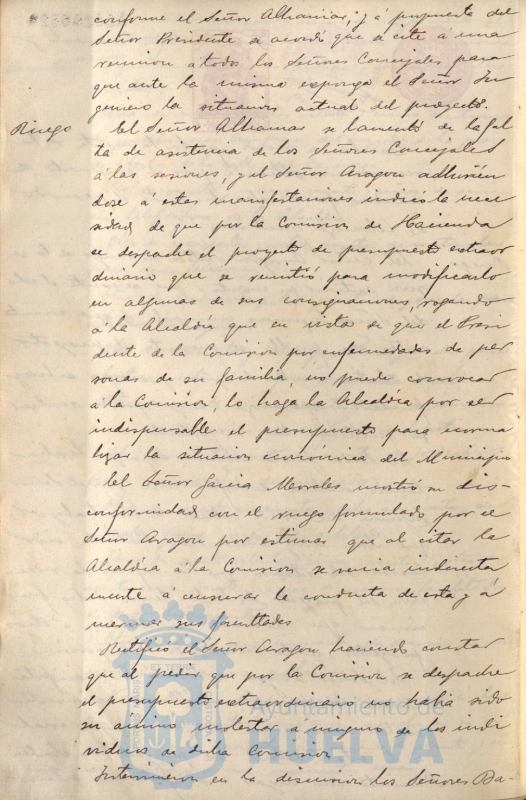 conforme el Señor Alhamar; y á propuesta del
Señor Presidente se acordó que se cite á una
reunion a todos los Señores Concejales para
que ante la misma exponga el Señor In
geniero la situacion actual del proyecto.
Ruego
El Señor Alhamar se lamentó de la fal
ta de asistencia de los Señores Concejales
á las sesiones, y el Señor Aragon adhirién
dose á estas manifestaciones indicó la nece
sidad de que por la Comision de Hacienda
se despache el proyecto de presupuesto extraor
dinario que se remitió para modificarlo
en algunas de sus consignaciones, rogando
á la Alcaldía que en vista de que el Presi
dente de la Comision por enfermedades de per
sonas de su familia, no puede convocar
á la Comision, lo haga la Alcaldía por ser
indispensable el presupuesto para norma
lizar la situacion económica del Municipio
El Señor Garcia Morales mostró su dis-
conformidad con el ruego formulado por el
Señor Aragon por estimar que al citar la
Alcaldía á la Comision se venia indirecta
mente á censurar la conducta de esta y á
mermar sus facultades
Rectificó el Señor Aragon haciendo constar
que al pedir que por la Comision se despache
el presupuesto extraordinario no habia sido
su animo molestar á ninguno de los indi
viduos de dicha Comision
Intervinieron en la discusion los Señores Ba-
Ayuntamiento de
HUELVA